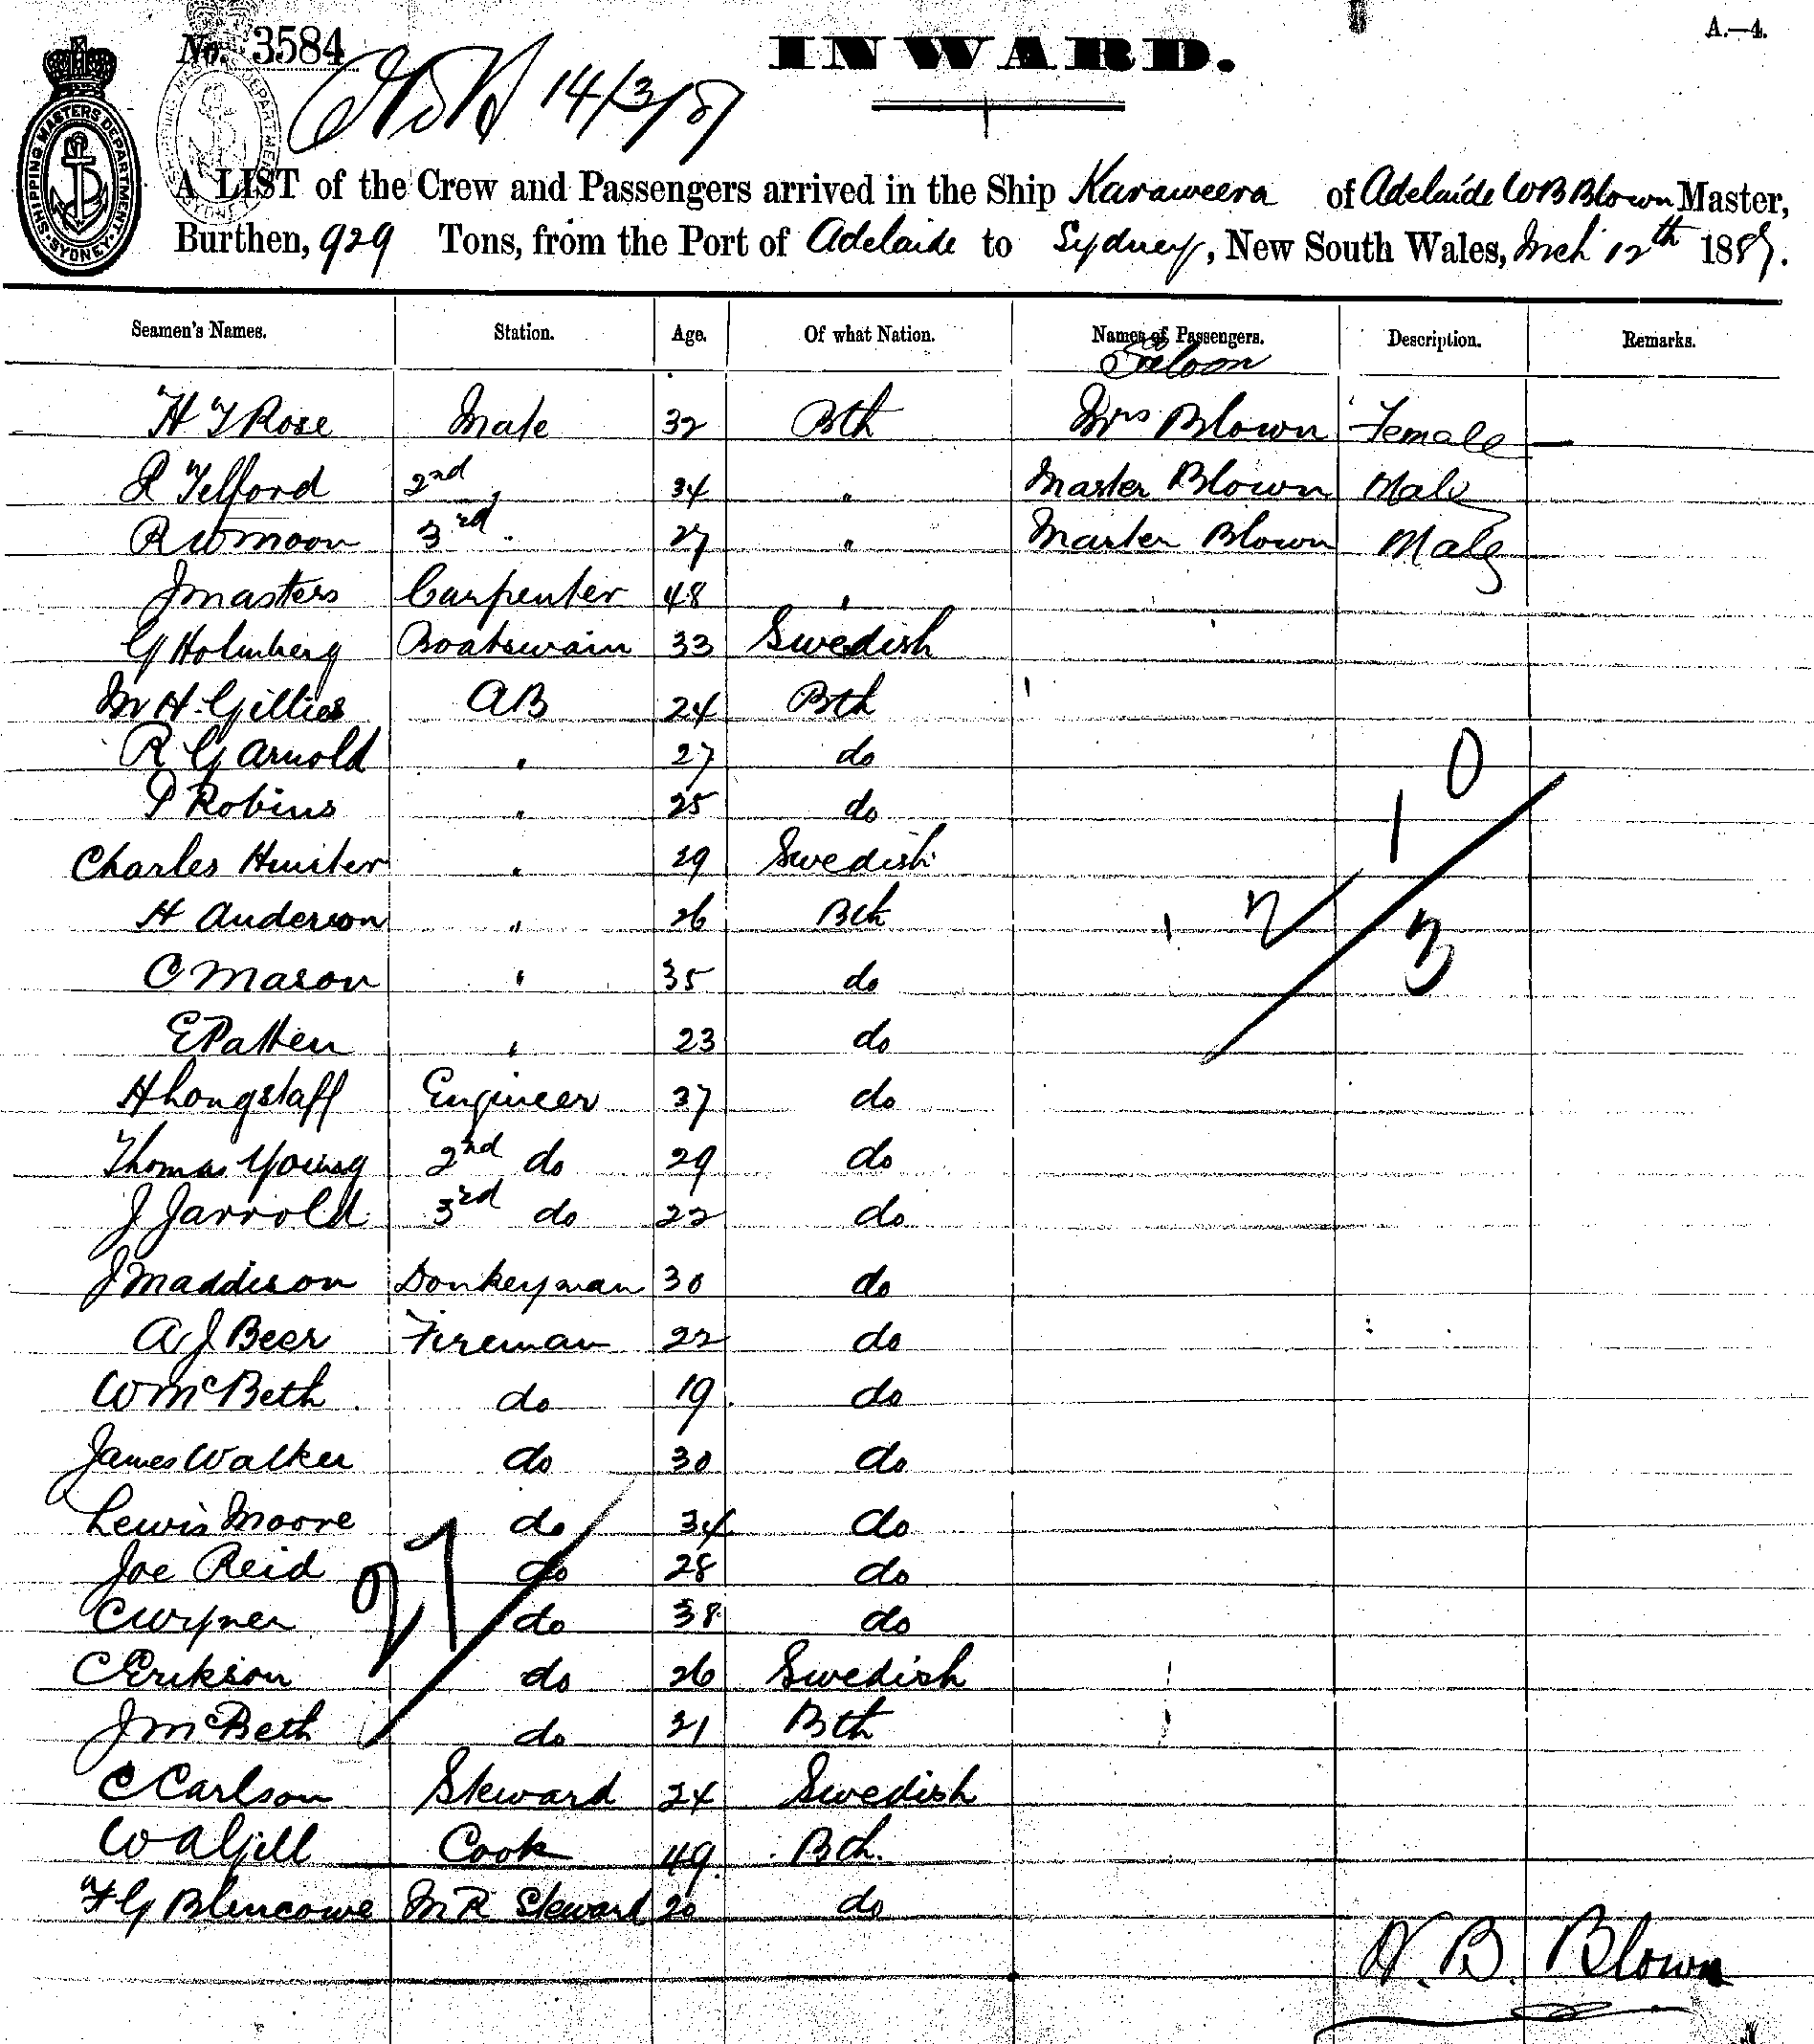 A.—4.
No. 3584
INWARD.
14/3/87
SHIPPING MASTERS DEPARTMENT SYDNEY
A LIST of the Crew and Passengers arrived in the Ship Karaweera of Adelaide W B Blown Master,
Burthen, 929 Tons, from the Port of Adelaide to Sydney, New South Wales, Mch 12th 1887.
Seamen's Names. Station. Age. Of what Nation. Names of Passengers. Description. Remarks.
Saloon
H T Rose Mate 32 Bth Mrs Blown Female —
R Telford 2nd " 34 " Master Blown Male
R W Moon 3rd " 27 " Master Blown Male
J Masters Carpenter 48 "
G Holmberg Boatswain 33 Swedish
M H Gillies AB 24 Bth
R G Arnold " 27 do
P Robins " 25 do
Charles Hunter " 29 Swedish
H Anderson " 26 Bth
C Mason " 35 do
E Patten " 23 do
H Longstaff Engineer 37 do
Thomas Young 2nd do 29 do
J Jarrold 3rd do 22 do
J Maddison Donkeyman 30 do
A J Beer Fireman 22 do
W McBeth do 19 do
James Walker do 30 do
Lewis Moore do 34 do
Joe Reid do 28 do
C Wyner do 38 do
C Erikson do 26 Swedish
J McBeth do 21 Bth
C Carlson Steward 24 Swedish
W A Gill Cook 49 Bth.
F G Blencowe M R Steward 20 do
1 0
2 / 3
27
W. B. Blown